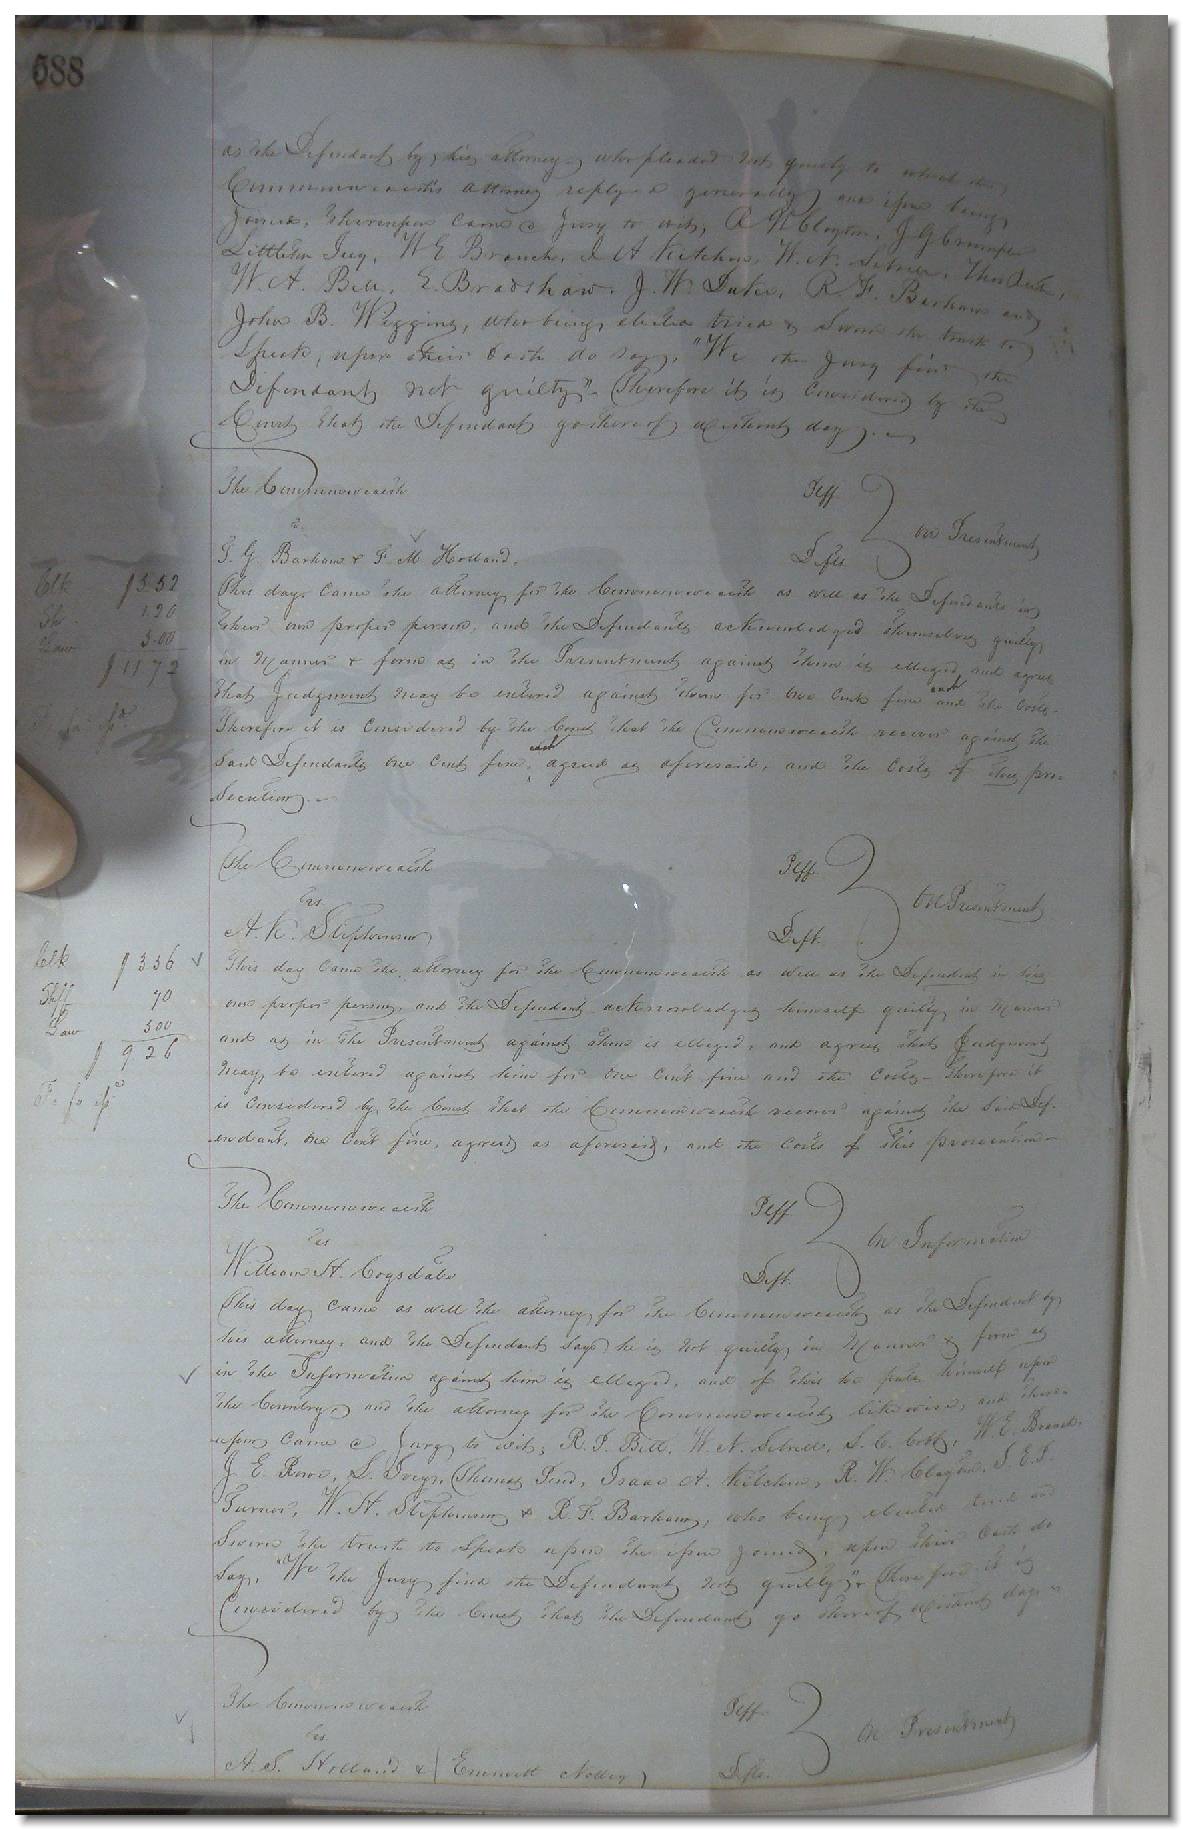 588
as the Defendant by his attorney, who pleaded not guilty to which the
Commonwealth's attorney replyed generally and issue being
Joined, Thereupon came a Jury to wit, R W Clayton, J G Crumpe
Littleton Ivey, W E Branch, I A Kitchen, W. N.
W. A. Bell, E. Bradshaw, J. W. Duke, R. F. Barham and
John B. Wiggins, who being elected tried & Sworn the truth to
Speak, upon their Oath do say, "We the Jury find the
Defendant not guilty". Therefore it is Considered by the
Court that the Defendant go thereof without day.
The Commonwealth Plff
vs. On Presentment
G. Barham & F M Holland. Defts
Clk $5.52
This day came the attorney for the Commonwealth as well as the Defendants in
Sh. 1.20
their own proper person, and the Defendants acknowledged themselves guilty
Law 5.00
$11 72
in Manner & form as in the Presentment against them is alleged, and agree
that Judgment may be entered against them for one Cent fine each and the Costs-
Therefore it is Considered by the Court that the Commonwealth recover against the
Said Defendants one Cent fine, each agreed as aforesaid, and the Costs of this pro-
secution.
The Commonwealth Plff
vs On Presentment
A. K. Stephenson Deft.
Clk $3 56
This day came the attorney for the Commonwealth as well as the Defendant in his
Shff 70
own proper person, and the Defendant acknowledges himself guilty, in Manner
Law 5 00
$ 9 26
and as in the Presentment against them is alleged, and agrees that Judgment
May be entered against him for one Cent fine and the Costs- Therefore it
Fi fa
is Considered by the Court that the Commonwealth recover against the Said Def-
endant, one Cent fine, agreed as aforesaid, and the Costs of this prosecution-
The Commonwealth Plff
vs On Information
William H. Cogsdale Deft.
This day came as well the attorney for the Commonwealth as the Defendant by
his attorney, and the Defendant Says he is not guilty, in Manner & form as
in the Information against him is alleged, and of this he puts himself upon
the Country, and the attorney for the Commonwealth likewise, and there-
upon came a Jury to wit; W. N. S. C. Cobb, W. E. Branch,
J. E. Rowe, L. Ivey, Thomas Pond, Isaac A. Kitchen, R. W. Clayton,
Turner, W. H. Stephenson & R. F. Barham, who being elected tried and
Sworn the truth to Speak upon the issue Joined, upon their Oath do
Say, "We the Jury find the Defendant not guilty". Therefore it is
Considered by the Court that the Defendant go thereof without day.
The Commonwealth Plff
vs On Presentment
A. S. Holland & Emmett Defts.